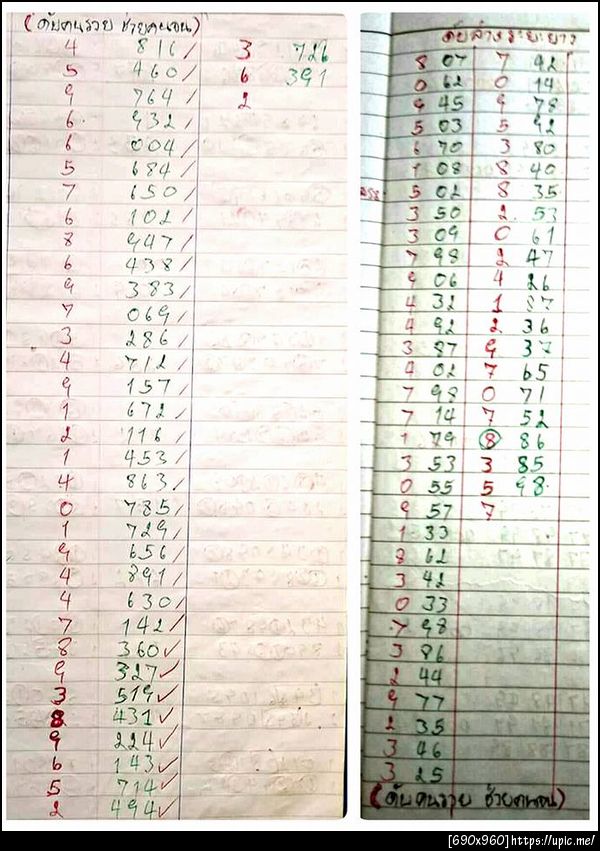 (ดับคนรวย ช่วยคนจน)
4 816 / 3 726
5 460 / 6 391
9 764 / 2
6 932 /
6 004 /
5 684 /
7 650 /
6 102 /
8 947 /
6 438 /
9 383 /
7 069 /
3 286 /
4 712 /
9 157 /
1 672 /
2 116 /
1 453 /
4 863 /
0 785 /
1 729 /
9 656 /
4 891 /
4 630 /
7 142 /
8 360 ✓
9 327 ✓
3 519 ✓
8 431 ✓
9 224 ✓
6 143 ✓
5 714 ✓
2 494 ✓
ดับล่างระยะยาว
8 07 7 42
0 62 0 14
9 45 9 78
5 03 5 92
6 70 3 80
1 08 8 40
5 02 8 35
3 50 2 53
3 09 0 61
7 98 2 47
9 06 4 26
4 32 1 87
4 92 2 36
3 87 9 37
4 02 7 65
7 98 0 71
7 14 7 52
1 79 8 86
3 53 3 85
0 55 5 98
9 57 7
1 33
8 62
3 42
0 33
7 98
3 86
2 44
9 77
2 35
3 46
3 25
(ดับคนรวย ช่วยคนจน)
[690x960]https://upic.me/